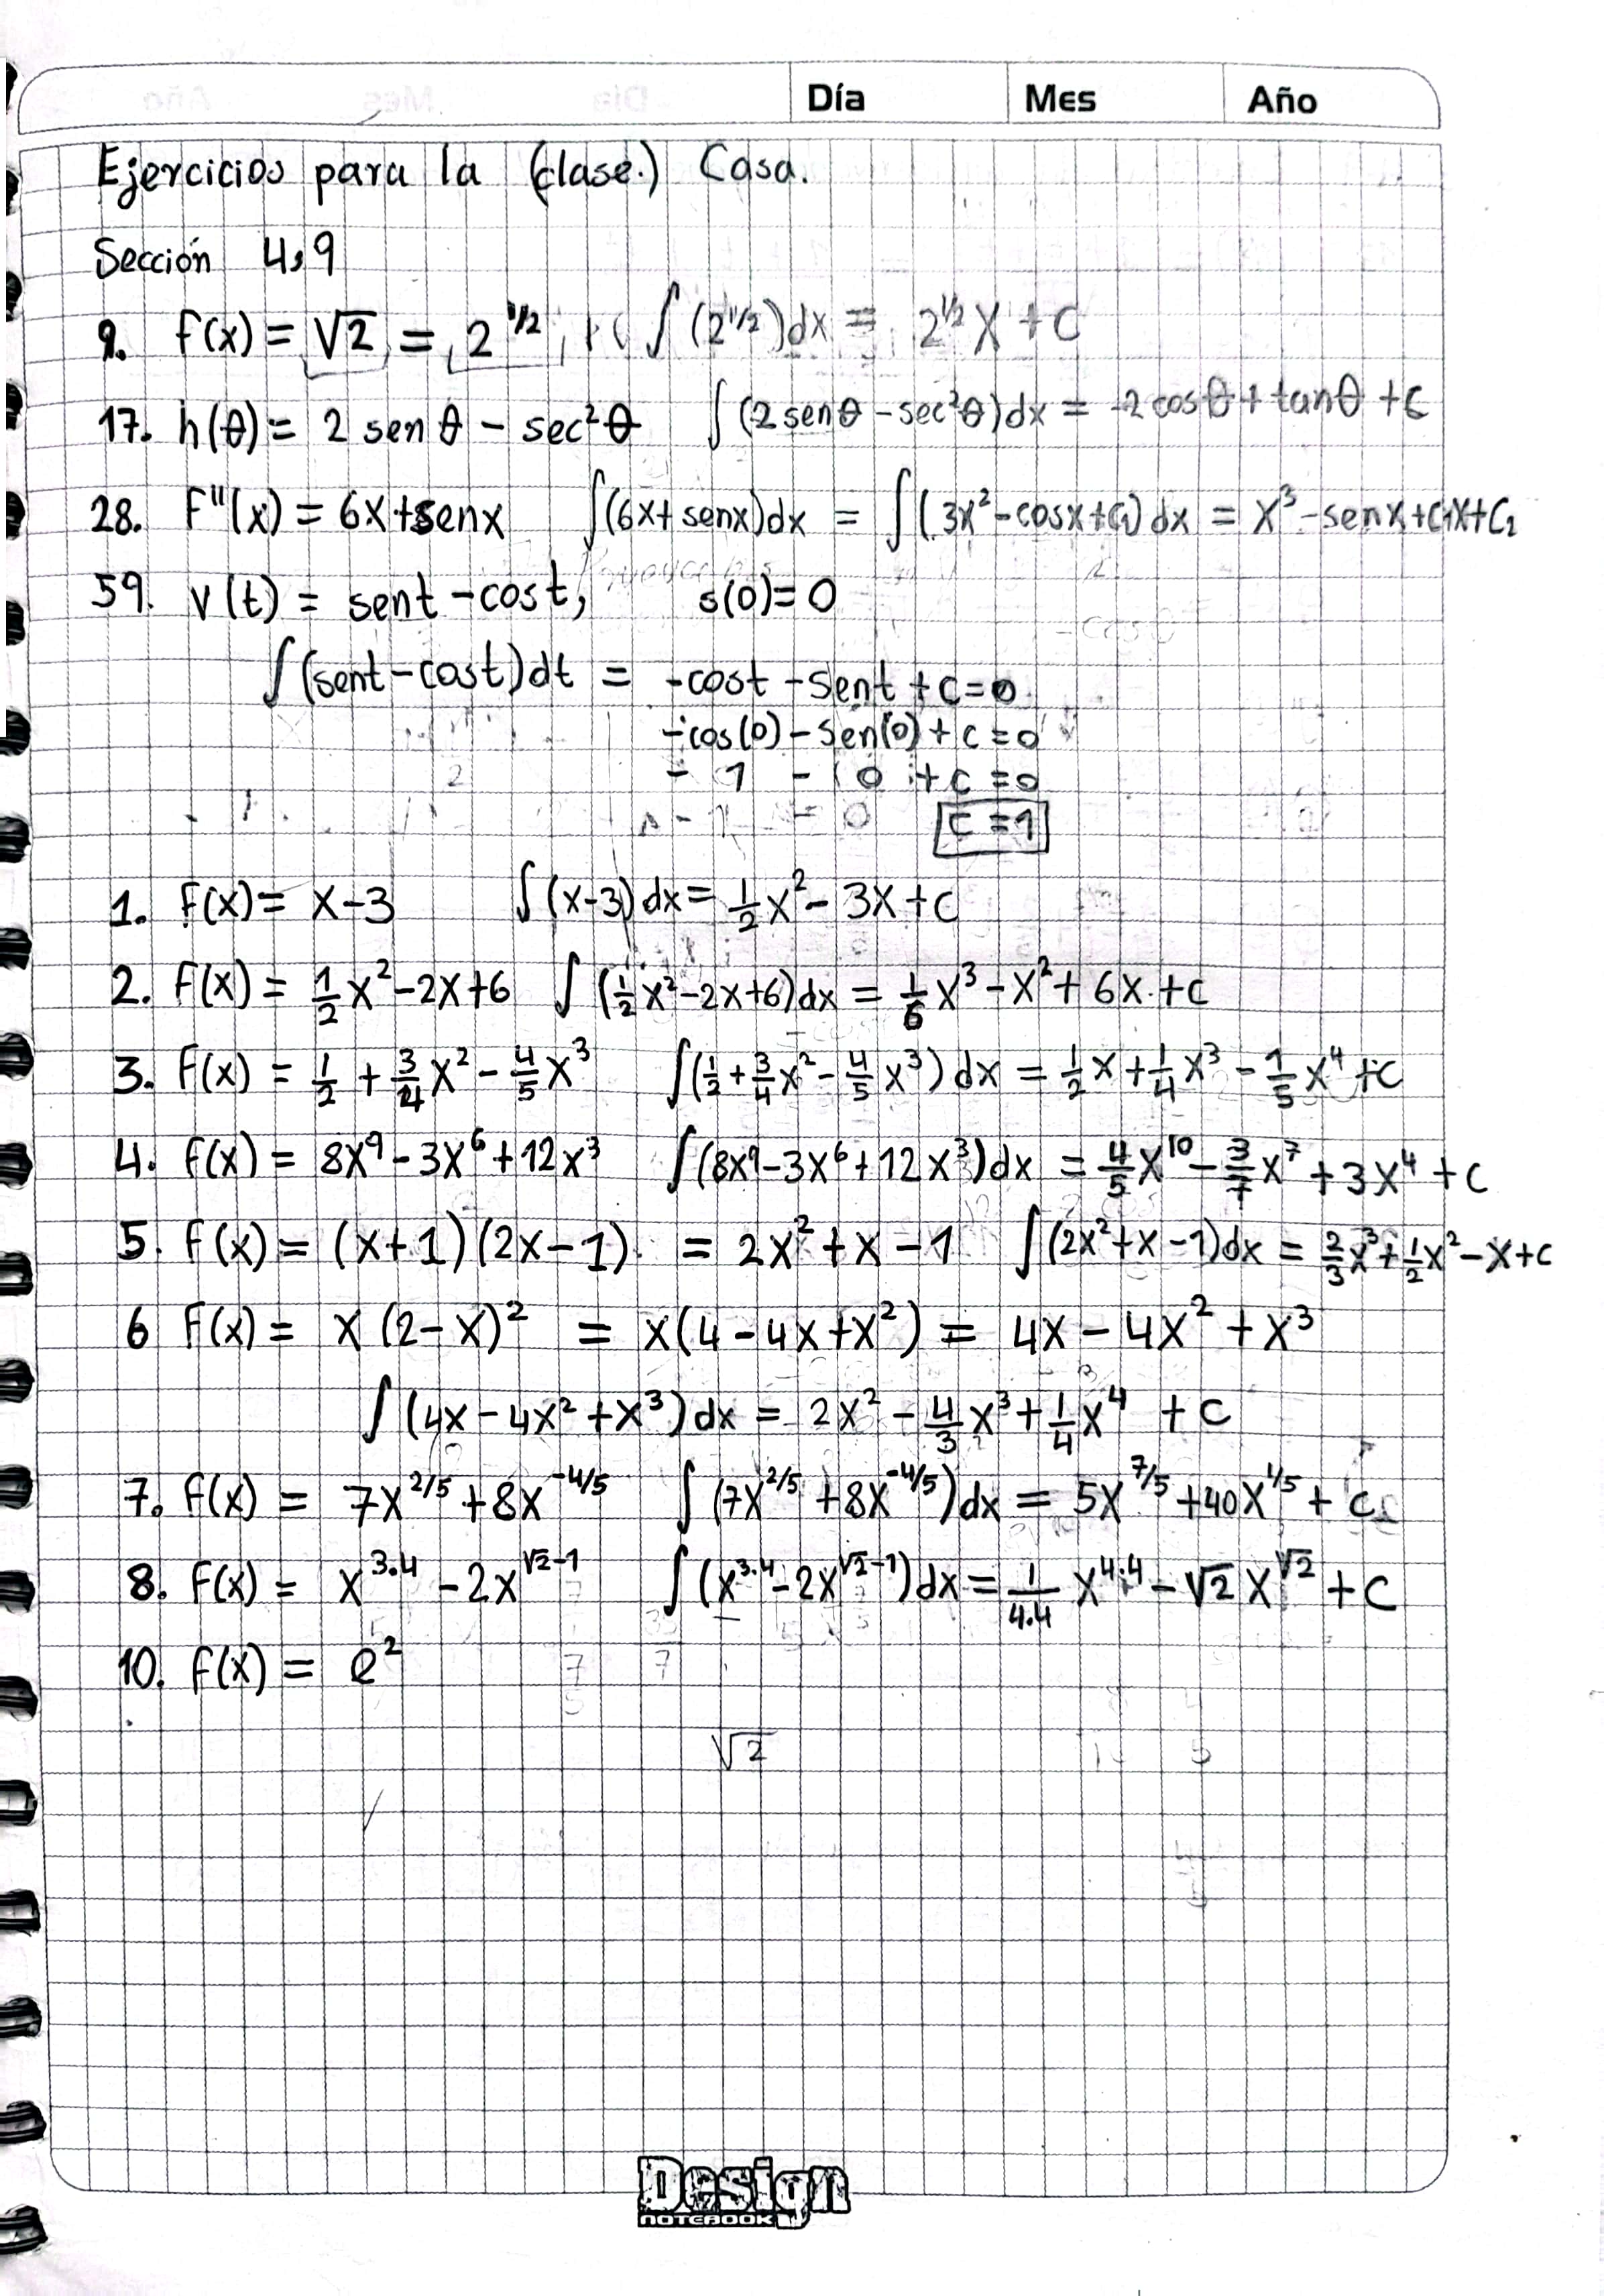 Día Mes Año
Ejercicios para la (clase.) Casa.
Sección 4,9
9. f(x) = √2 = 2^1/2 ∫(2^1/2)dx = 2^1/2 X + C
17. h(θ) = 2 sen θ - sec²θ ∫(2 senθ - sec²θ)dx = -2 cosθ + tanθ + C
28. F''(x) = 6x+senx ∫(6x+senx)dx = ∫(3x²-cosx+C₁)dx = x³-senx+C₁x+C₂
59. v(t) = sent - cost, s(0)=0
∫(sent-cost)dt = -cost - sent + c = 0
-cos(0) - sen(0) + c = 0
- 1 - 0 + c = 0
c = 1
1. f(x) = x-3 ∫(x-3)dx = 1/2 x² - 3x + c
2. f(x) = 1/2 x² - 2x + 6 ∫(1/2 x² - 2x + 6)dx = 1/6 x³ - x² + 6x + c
3. f(x) = 1/2 + 3/4 x² - 4/5 x³ ∫(1/2 + 3/4 x² - 4/5 x³)dx = 1/2 x + 1/4 x³ - 1/5 x⁴ + c
4. f(x) = 8x⁹ - 3x⁶ + 12x³ ∫(8x⁹ - 3x⁶ + 12x³)dx = 4/5 x¹⁰ - 3/7 x⁷ + 3x⁴ + c
5. f(x) = (x+1)(2x-1) = 2x² + x - 1 ∫(2x²+x-1)dx = 2/3 x³ + 1/2 x² - x + c
6 f(x) = x(2-x)² = x(4-4x+x²) = 4x - 4x² + x³
∫(4x - 4x² + x³)dx = 2x² - 4/3 x³ + 1/4 x⁴ + c
7. f(x) = 7x^2/5 + 8x^-4/5 ∫(7x^2/5 + 8x^-4/5)dx = 5x^7/5 + 40x^1/5 + c
8. f(x) = x^3.4 - 2x^√2-1 ∫(x^3.4 - 2x^√2-1)dx = 1/4.4 x^4.4 - √2 x^√2 + C
10. f(x) = e²
√2
Design
NOTEBOOK